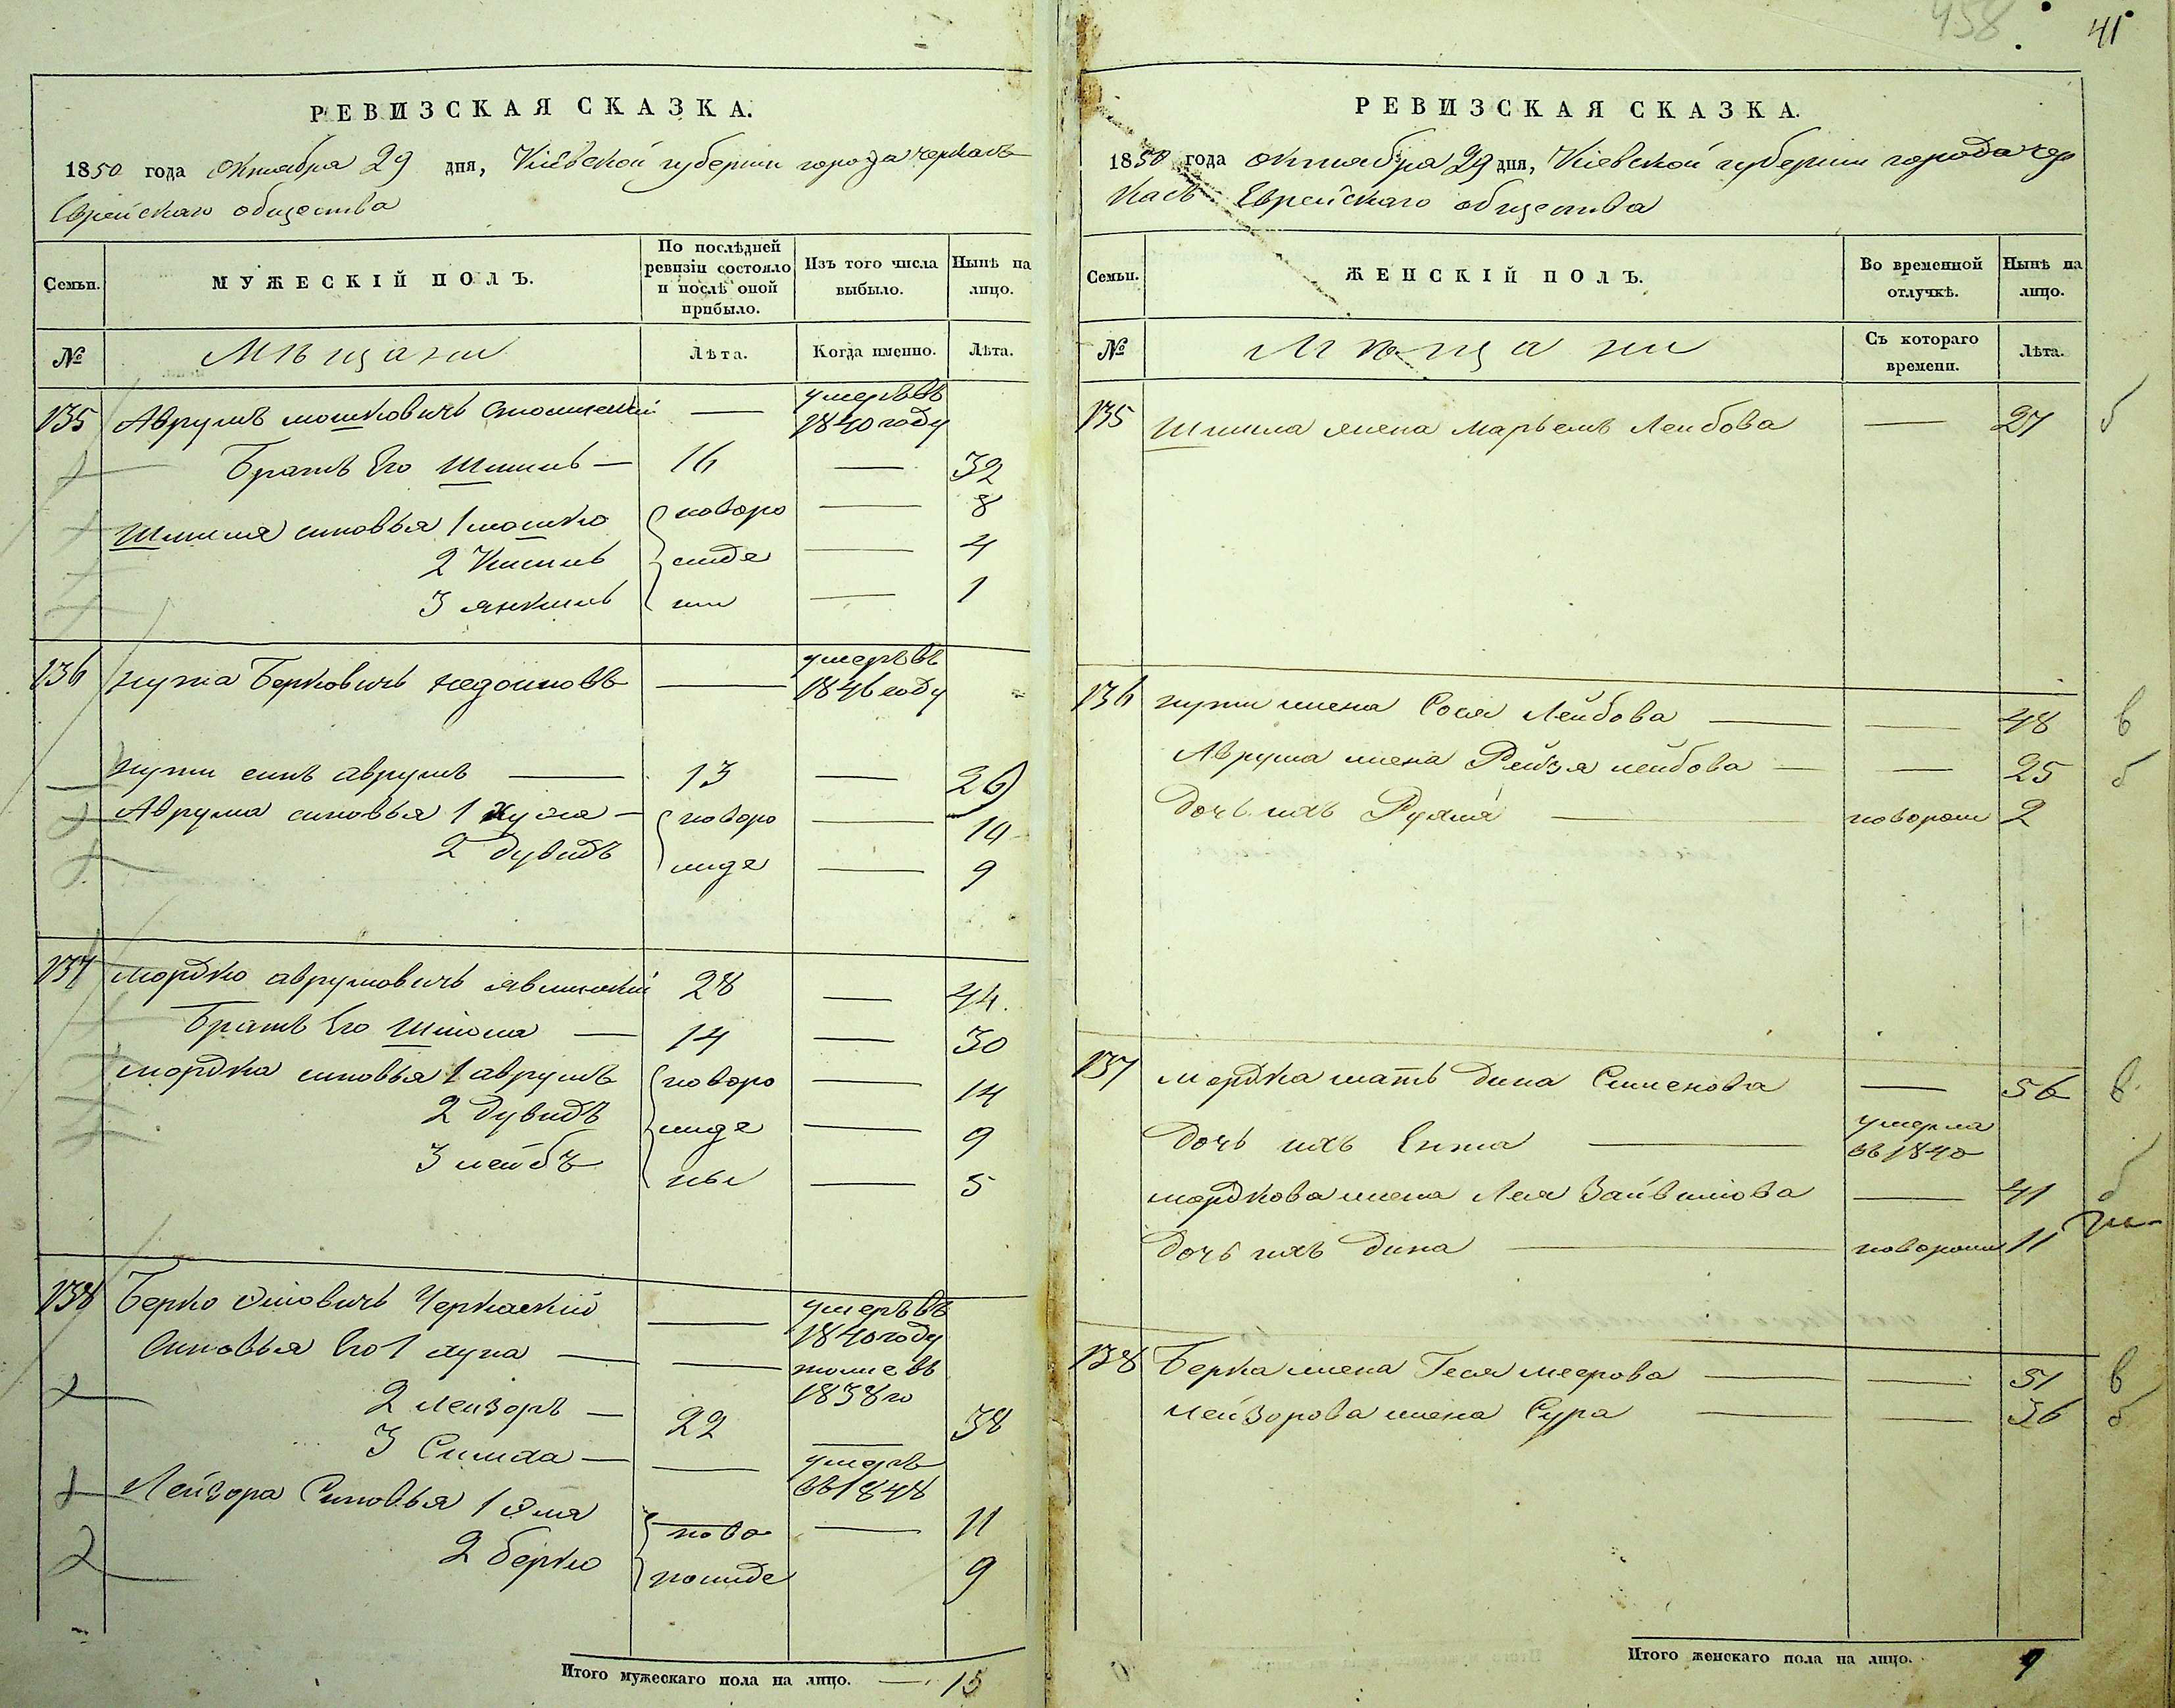 458
41
РЕВИЗСКАЯ СКАЗКА.
1850 года Октября 29 дня, Кіевской губерніи города Черкасъ
Еврейскаго общества
Семьи.
МУЖЕСКІЙ ПОЛЪ.
По послѣдней ревизіи состояло и послѣ оной прибыло.
Изъ того числа выбыло.
Нынѣ на лицо.
№
Мѣщани
Лѣта.
Когда именно.
Лѣта.
135 Аврумъ Мошковичъ — умеръ въ 1840 году
Братъ Его Шмиль — 16 — 32
Шмиля синовья 1 Мошко новоро — 8
2 Кисиль жде — 4
3 Янкиль ни — 1
136 Нута Берковичъ — умеръ въ 1846 году
Нути синъ Аврумъ — 13 — 26
Аврума синовья 1 — новоро — 10
2 Дувидъ жде — 9
137 Мордко Аврумовичъ Явлинскій 28 — 44
Братъ Его Шлома — 14 — 30
Мордка синовья 1 Аврумъ новоро — 14
2 Дувидъ жде — 9
3 Лейбъ ны — 5
138 Берко Юковичъ Черкаскій — умеръ въ 1840 году
Синовья Его 1 — — тоже въ 1838 го
2 Лейзоръ — 22 — 38
3 Симха — — умеръ въ 1848
Лейзора Синовья 1 ново — 11
2 Берко рожде 9
Итого мужескаго пола на лицо. — 15
РЕВИЗСКАЯ СКАЗКА.
1850 года октября 29 дня, Кіевской губерніи города Чер
касъ Еврейскаго общества
Семьи.
ЖЕНСКІЙ ПОЛЪ.
Во временной отлучкѣ.
Нынѣ на лицо.
№
Мѣщани
Съ котораго времени.
Лѣта.
135 Шмиля жена Марьемъ Лейбова — 27 б
136 Нути жена Сося Лейбова — — 48 в
Аврума жена Рейзя Лейбова — — 25 б
Дочь ихъ Рухля —новорож 2
137 Мордка мать Дина Симонова — 56 в
Дочь ихъ Ента — умерла въ 1840
Мордкова жена Лея Зайвилова — 41 б
Дочь ихъ Дина —новорож 11
138 Берка жена Геся Меерова — — 51 в
Лейзорова жена Сура — — 36 б
Итого женскаго пола на лицо. 9